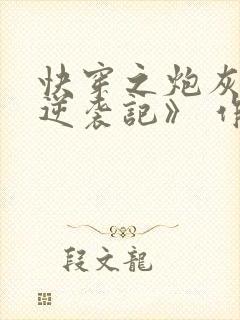 快穿之炮灰
逆袭記》 作
段文龍